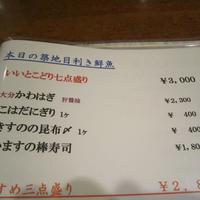 本日の築地目利き鮮魚
いいとこどり七点盛り ￥3,000
大分かわはぎ 肝醤油 ￥2,200
こはだにぎり 1ケ ￥ 400
きすのの昆布〆 1ケ ￥ 400
ますの棒寿司 ￥1,80
すめ三点盛り ￥2,8